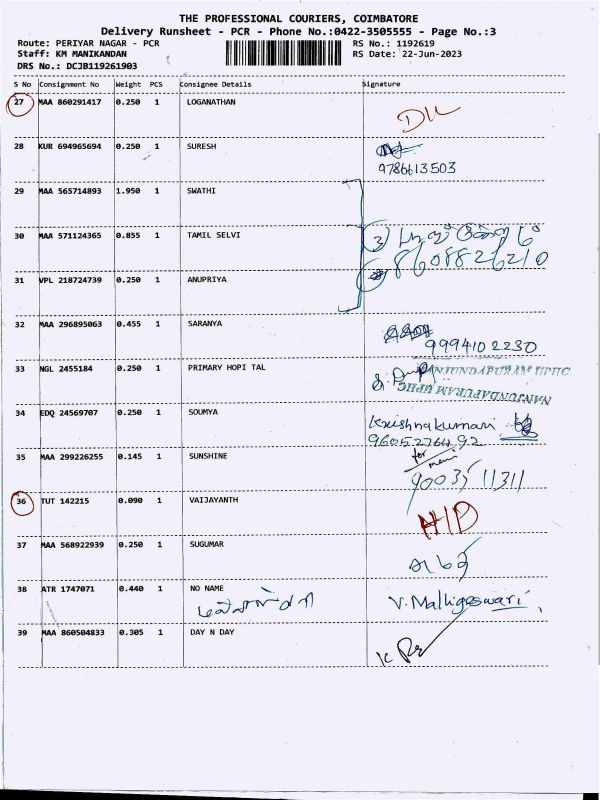 THE PROFESSIONAL COURIERS, COIMBATORE
Delivery Runsheet - PCR - Phone No.:0422-3505555 - Page No.:3
Route: PERIYAR NAGAR - PCR RS No.: 1192619
Staff: KM MANIKANDAN RS Date: 22-Jun-2023
DRS No.: DCJB119261903
S No Consignment No Weight PCS Consignee Details Signature
27 MAA 860291417 0.250 1 LOGANATHAN
28 KUR 694965694 0.250 1 SURESH
9786613503
29 MAA 565714893 1.950 1 SWATHI
30 MAA 571124365 0.855 1 TAMIL SELVI
8608826210
31 VPL 218724739 0.250 1 ANUPRIYA
32 MAA 296895063 0.455 1 SARANYA
9994102230
33 NGL 2455184 0.250 1 PRIMARY HOPI TAL
NANJUNDAPURAM UPHC
34 EDQ 24569707 0.250 1 SOUMYA Krishnakumari
9605276492
35 MAA 299226255 0.145 1 SUNSHINE for
9003511311
36 TUT 142215 0.090 1 VAIJAYANTH
37 MAA 568922939 0.250 1 SUGUMAR
38 ATR 1747071 0.440 1 NO NAME V. Malligeswari
39 MAA 860504833 0.305 1 DAY N DAY